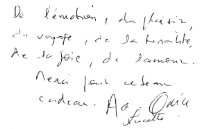 De l'émotion, du plaisir,
du voyage, de la
de la joie, de l'amour.
Merci pour ce beau
cadeau.